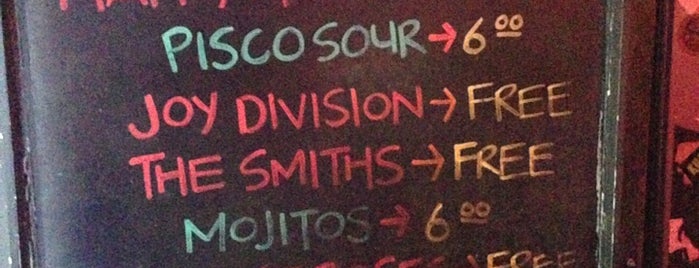 PISCO SOUR → 6 00
JOY DIVISION → FREE
THE SMITHS → FREE
MOJITOS → 6 00
→ FREE